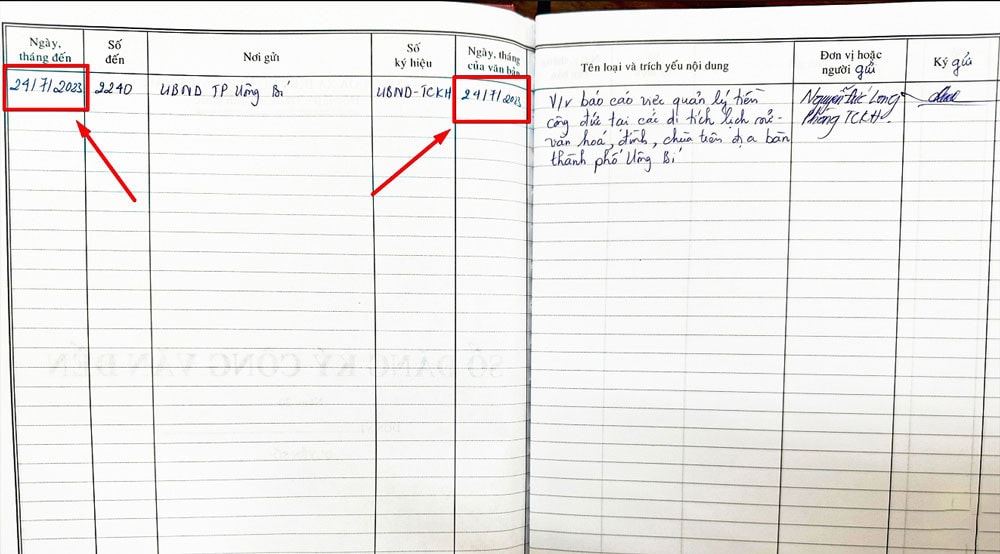 Ngày, tháng đến
Số đến
Nơi gửi
Số ký hiệu
Ngày, tháng của văn bản
Tên loại và trích yếu nội dung
Đơn vị hoặc người gửi
Ký gửi
24/7/2023
2240
UBND TP Uông Bí
UBND-TCKH
24/7/2023
V/v báo cáo việc quản lý tiền
công đức tại các di tích lịch sử-
văn hoá, đình, chùa trên địa bàn
thành phố Uông Bí
Nguyễn Đức Long
Phòng TCKH.
SỔ ĐĂNG KÝ CÔNG VĂN ĐẾN